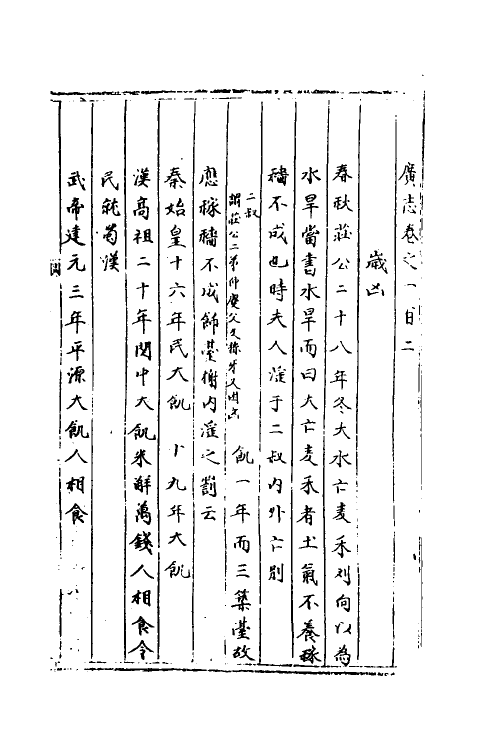 廣志卷之一百二
歲凶
春秋莊公二十八年冬大水亡麦禾刘向以為
水旱當書水旱而曰大亡麦禾者土氣不養稼
穡不成也時夫人淫于二叔内外亡别
二叔
謂莊公二弟仲慶父叔牙又因凶
飢一年而三築臺故
應稼穡不成飾臺榭内淫之罰云
秦始皇十六年民大飢 十九年大飢
漢高祖二十年関中大飢米斛萬錢人相食令
民就蜀漢
武帝建元三年平源大飢人相食